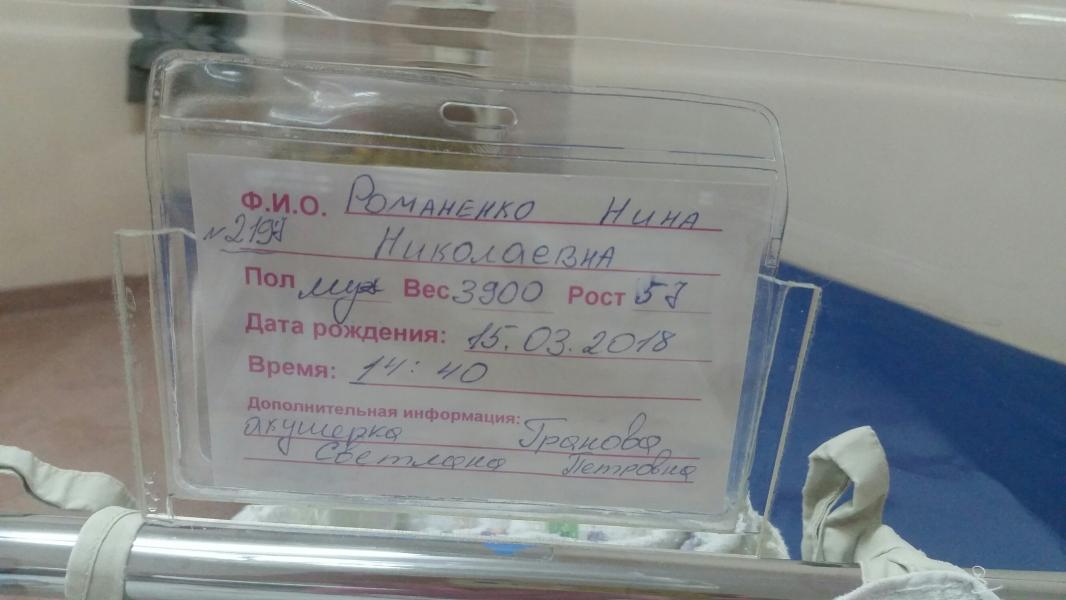 Ф.И.О. Романенко Нина
№2197 Николаевна
Пол муж Вес 3900 Рост 57
Дата рождения: 15.03.2018
Время: 14:40
Дополнительная информация:
акушерка Гранова
Светлана Петровна